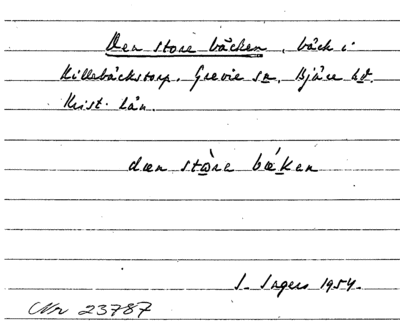 Den store bäcken, bäck i
Killebäckstorp. Grevie sn. Bjäre hd.
Krist. län.
dæn stòre bǽken
S. Ingers 1954.
Nr 23787